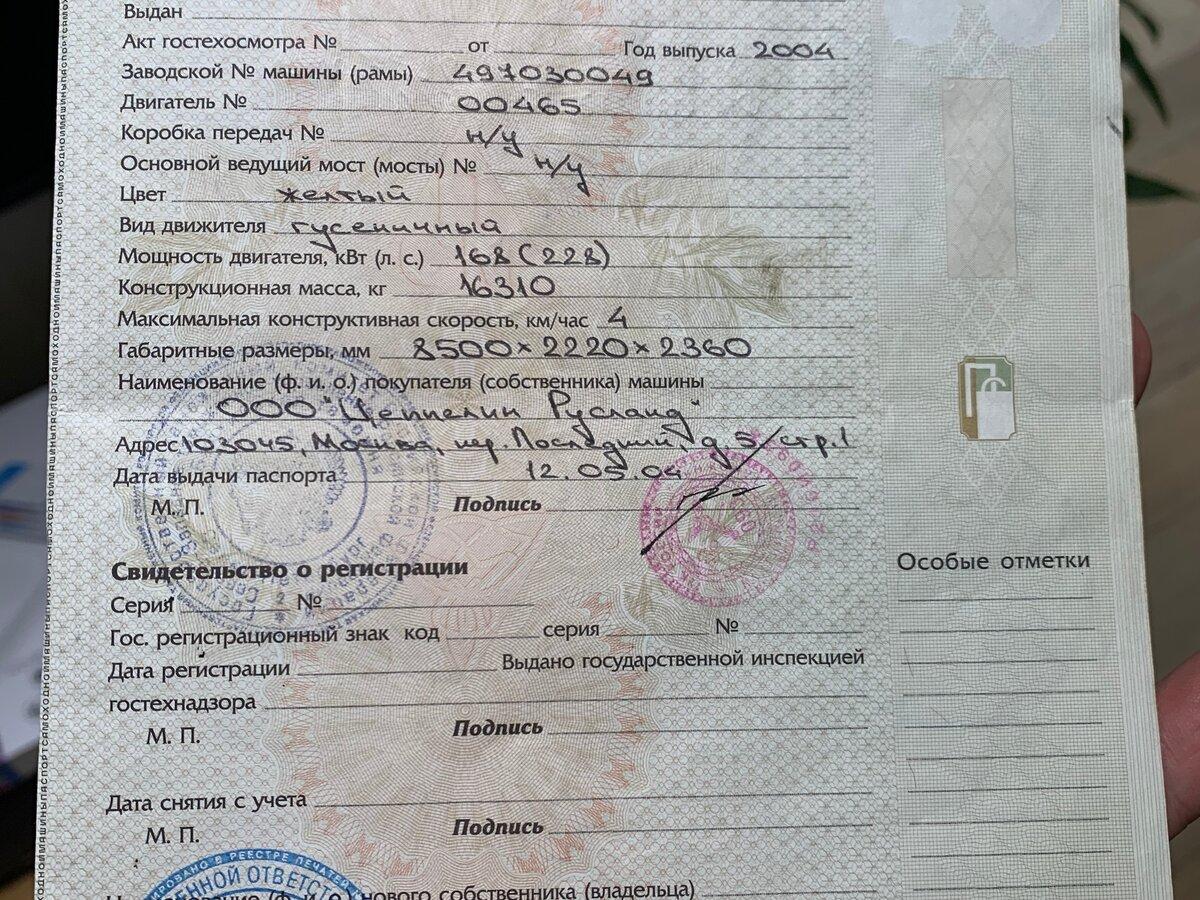 Выдан
Акт гостехосмотра № от Год выпуска 2004
Заводской № машины (рамы) 497030049
Двигатель № 00465
Коробка передач № н/у
Основной ведущий мост (мосты) № н/у
Цвет желтый
Вид движителя гусеничный
Мощность двигателя, кВт (л. с.) 168 (228)
Конструкционная масса, кг 16310
Максимальная конструктивная скорость, км/час 4
Габаритные размеры, мм 8500 × 2220 × 2360
Наименование (ф. и. о.) покупателя (собственника) машины
ООО "Цеппелин Русланд"
Адрес 103045, Москва, пер. Последний, д. 5/стр. 1
Дата выдачи паспорта 12.05.04
М. П. Подпись
Свидетельство о регистрации
Особые отметки
Серия №
Гос. регистрационный знак код серия №
Дата регистрации Выдано государственной инспекцией
гостехнадзора
М. П. Подпись
Дата снятия с учета
М. П. Подпись
В РЕЕСТРЕ ПЕЧАТЕЙ
ОТВЕТСТ
нового собственника (владельца)